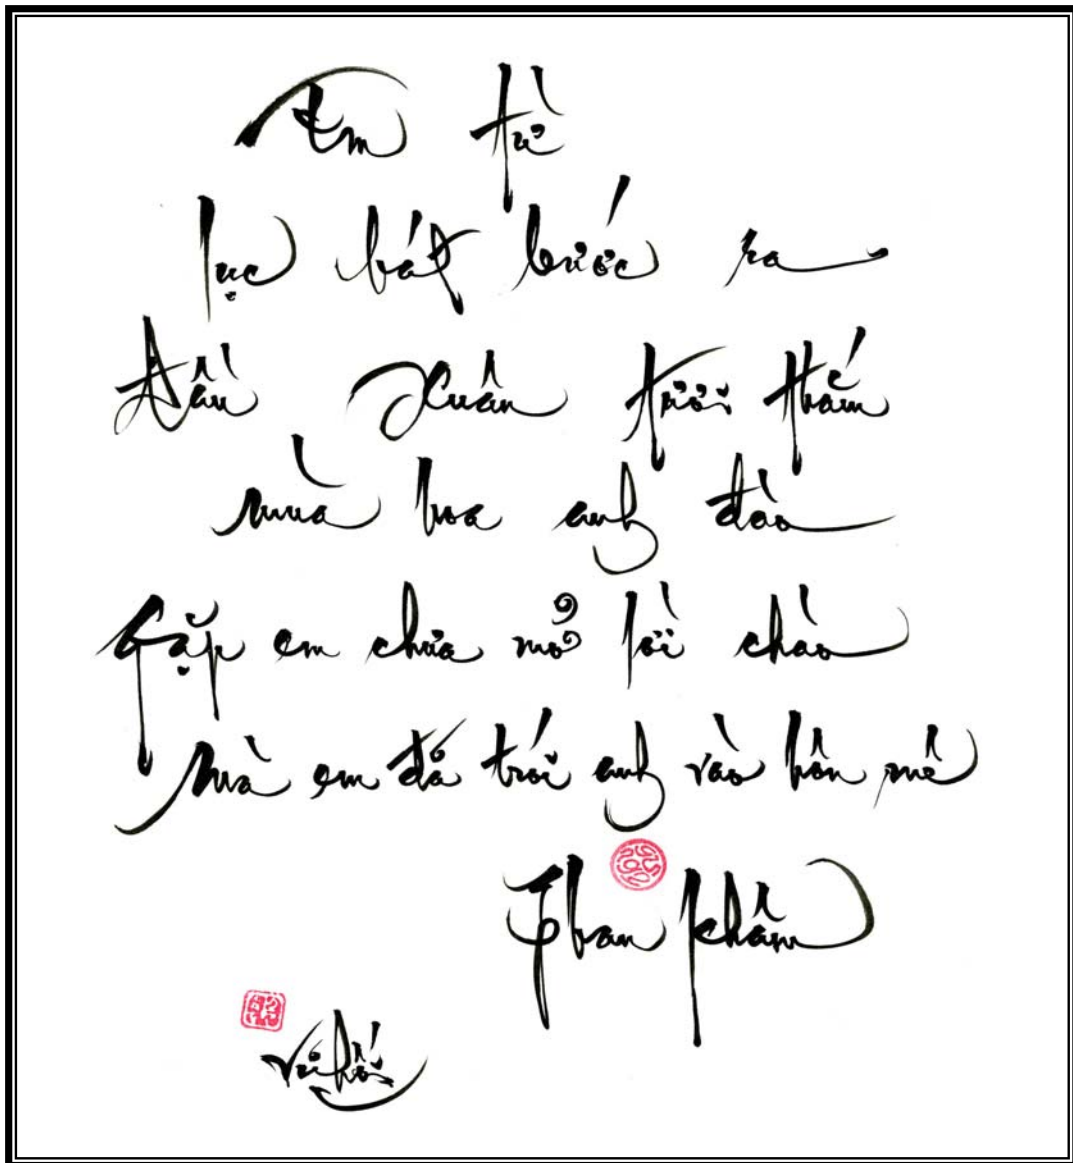 Em từ
lục bát bước ra
Đầu Xuân tươi thắm
mùa hoa anh đào
Gặp em chưa mở lời chào
Mà em đã trói anh vào hôn mê
Phan Khâm
Vũ Hối